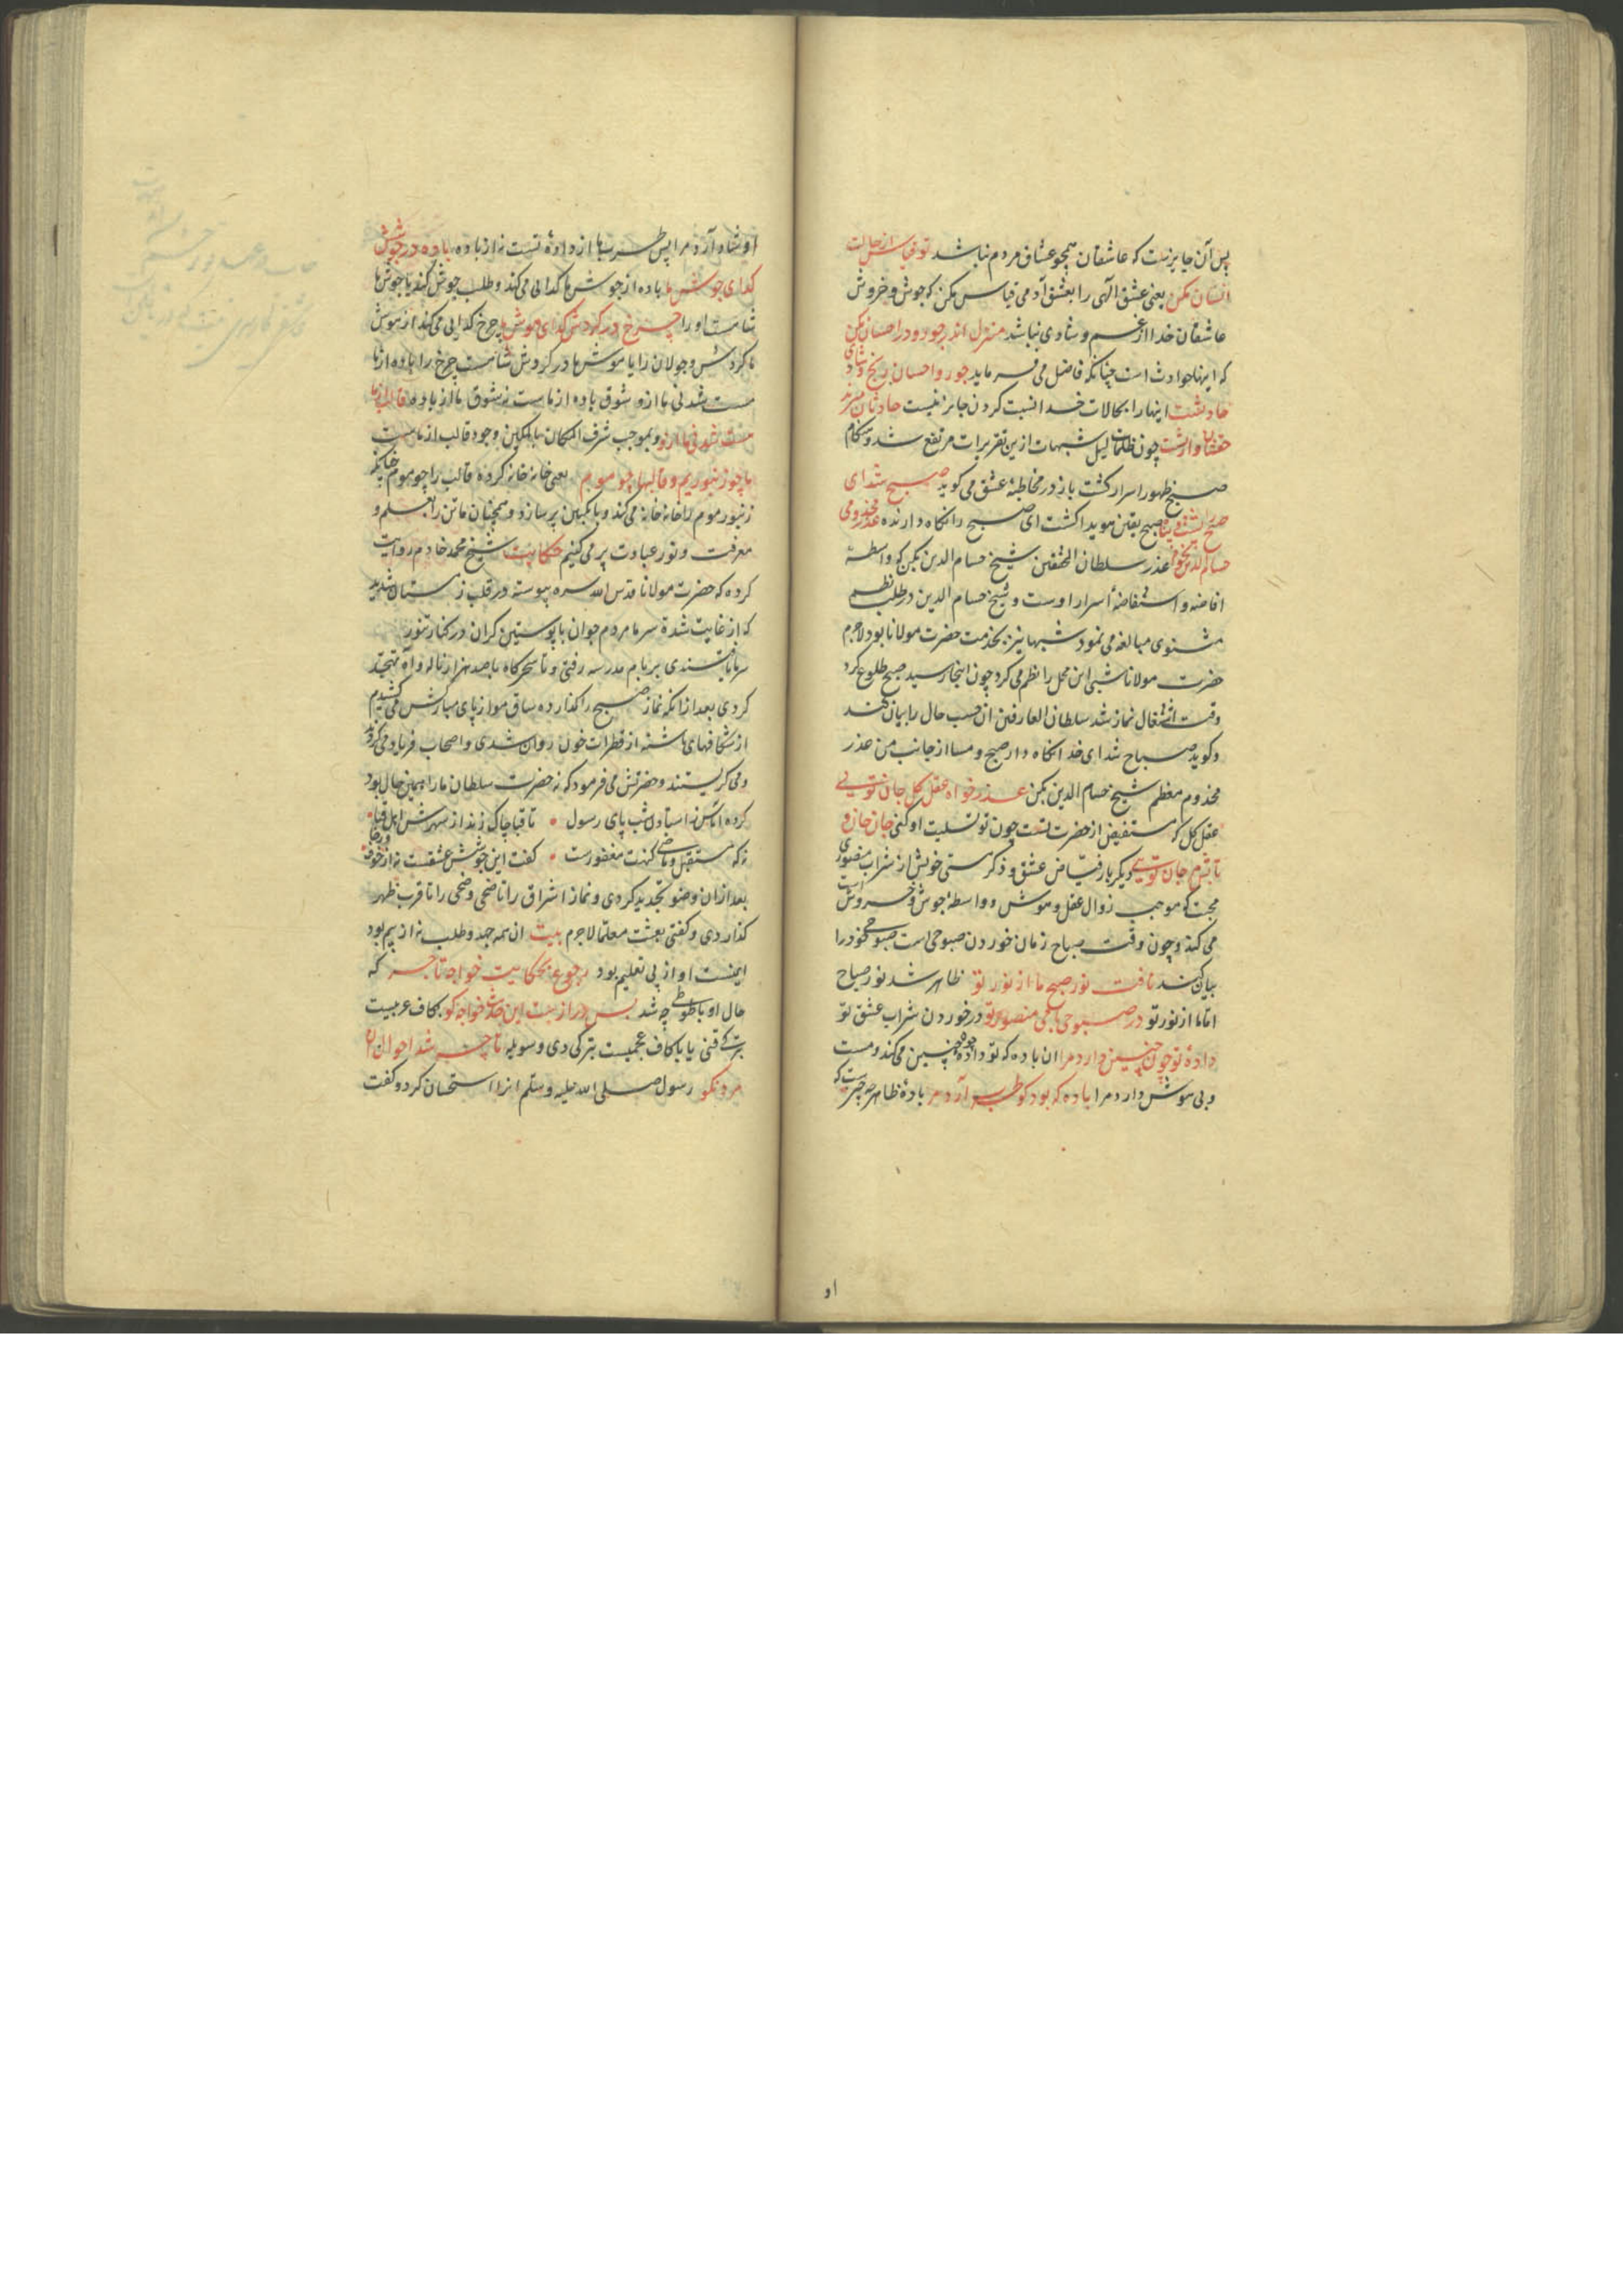 پس آن جایز نیست که عاشقان همچو عشاق مردم نباشد تو قیاس از حالت
انسان مکن یعنی عشق الهی را بعشق آدمی قیاس مکن که جوش و خروش
عاشقان خدا از غم و شادی نباشد منزل اندر جور و در احسان مکن
که اینها حوادث است چنانکه فاضل می فرماید جور و احسان رنج و شادی
حادثست اینها را بحالات خدا نسبت کردن جایز نیست حادثان میرند
حقشان وارثست چون ظلمات لیل شبهات ازین تقریرات مرتفع شد و هنکام
صبح ظهور اسرار کشت باز در مخاطبهٔ عشق می کوید صبح شد ای
صبح را پشت و پناه صبح یقین هویدا کشت ای صبح را نکاه دارنده عذر مخدومی
حسام الدین بخواه عذر سلطان المحققین شیخ حسام الدین بکن که واسطهٔ
افاضه و استفاضهٔ اسرار اوست و شیخ حسام الدین در طلب نظم
مثنوی مبالغه می نمود شبها نیز بخدمت حضرت مولانا بود لاجرم
حضرت مولانا شبی این محل را نظم می کرد چون اینجا رسید صبح طلوع کرد
وقت اشتغال نماز شد سلطان العارفین ان حسب حال را بیان کند
و کوید صباح شد ای خدا نکاه دار صبح و مسا از جانب من عذر
مخدوم معظم شیخ حسام الدین بکن عذر خواه عقل کل جان تویی
عقل کل که مستفیض از حضرت تست چون تو تسلیت او کنی جان جان و
تابش مرجان تویی دیکر بار فیاض عشق و ذکر مستی خویش از شراب منصوری
محبت که موجب زوال عقل و هوش و واسطهٔ جوش و خروش است
می کند و چون وقت صباح زمان خوردن صبوحی است صبوحی خود را
بیان کند تافت نور صبح ما از نور تو ظاهر شد نور صباح
اما ما از نور تو در صبوحی با می منصور تو در خوردن شراب عشق تو
دادهٔ تو چون چنین دارد مرا ان باده که تو دادهٔ چون چنین می کند و مست
و بی هوش دارد مرا باده که بود کو طرب آرد مرا بادهٔ ظاهر چه چیزست که
او
او شاد آرد مرا پس طرب ما از دادهٔ تست نه از باده باده در جوشش
کدای جوش ما باده از جوشش ما کدایی می کند و طلب جوش کند یا جوش ما
شامست او را چرخ در کردش کدای هوش ما چرخ کدایی می کند از هوش
ما کردش و جولان را یا هوش ما در کردش شامست چرخ را باده از ما
مست شد نی ما ازو شوق باده از ماست نه شوق ما از باده قالب از ما
هست شد نی ما ازو و بموجب شرف المکان بالمکین وجود قالب از ماست
ما چو زنبوریم و قالبها چو موم یعنی خانه خانه کرده قالب را چو موم چنانکه
زنبور موم را خانه خانه می کند و با نکبین پر سازد و همچنان ما تن را بعلم و
معرفت و نور عبادت پر می کنیم حکایت شیخ محمد خادم روایت
کرده که حضرت مولانا قدس الله سره پیوسته در قلب زمستان شدید
که از غایت شدة سرما مردم جوان با پوستین کران در کنار تنور
سرما نا تندی بر بام مدرسه رفتی و تا سحرکاه با صد هزار ناله و آه تهجد
کردی بعد از انکه نماز صبح را کذارده ساق موزه از پای مبارکش می کشیدم
از شکافهای پاشنه از قطرات خون روان شدی و اصحاب فریاد می کردند
و می کریستند و حضرتش می فرمود که نه حضرت سلطان ما را همین حال بود
کرده اماس ز استادن شب پای رسول • تا قبا چاک زدند از سهرش اهل قبا •
نه که مستقبل و ماضی کنهت مغفورست • کفت این جوشش عشقست نه از خوف و رجا
بعد از ان وضو تجدید کردی و نماز اشراق را تا ضحی و ضحی را تا قرب ظهر
کذاردی و کفتی بعثت معلما لاجرم بیت ان همه جهد و طلب نه از بیم بود
اینست او از پی تعلیم بود رجوع بحکایت خواجهٔ تاجر که
حال او با طوطی چه شد بس درازست این حدیث خواجه کو بکاف عربیست
ترکی قنی یا با کاف عجمیست ترکی دی و سویله تا چه شد احوال آن
مرد نکو رسول صلی الله علیه وسلم انرا استحسان کرد و کفت